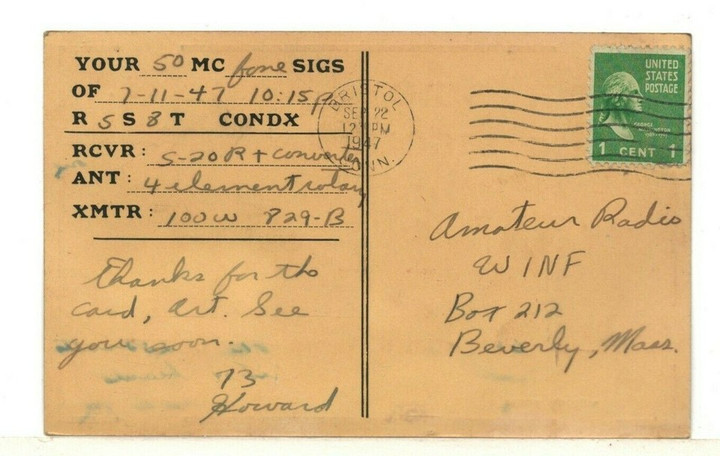 YOUR 50 MC fone SIGS
OF 7-11-47 10:15P
R 5 S 8 T CONDX
RCVR: S-20R + converter
ANT: 4 element rotary
XMTR: 100W 829-B
Thanks for the
card, Art. See
you soon.
73
Howard
BRISTOL
SEP 22
12 PM
1947
CONN.
UNITED
STATES
POSTAGE
GEORGE
WASHINGTON
1 CENT 1
Amateur Radio
W1NF
Box 212
Beverly, Mass.